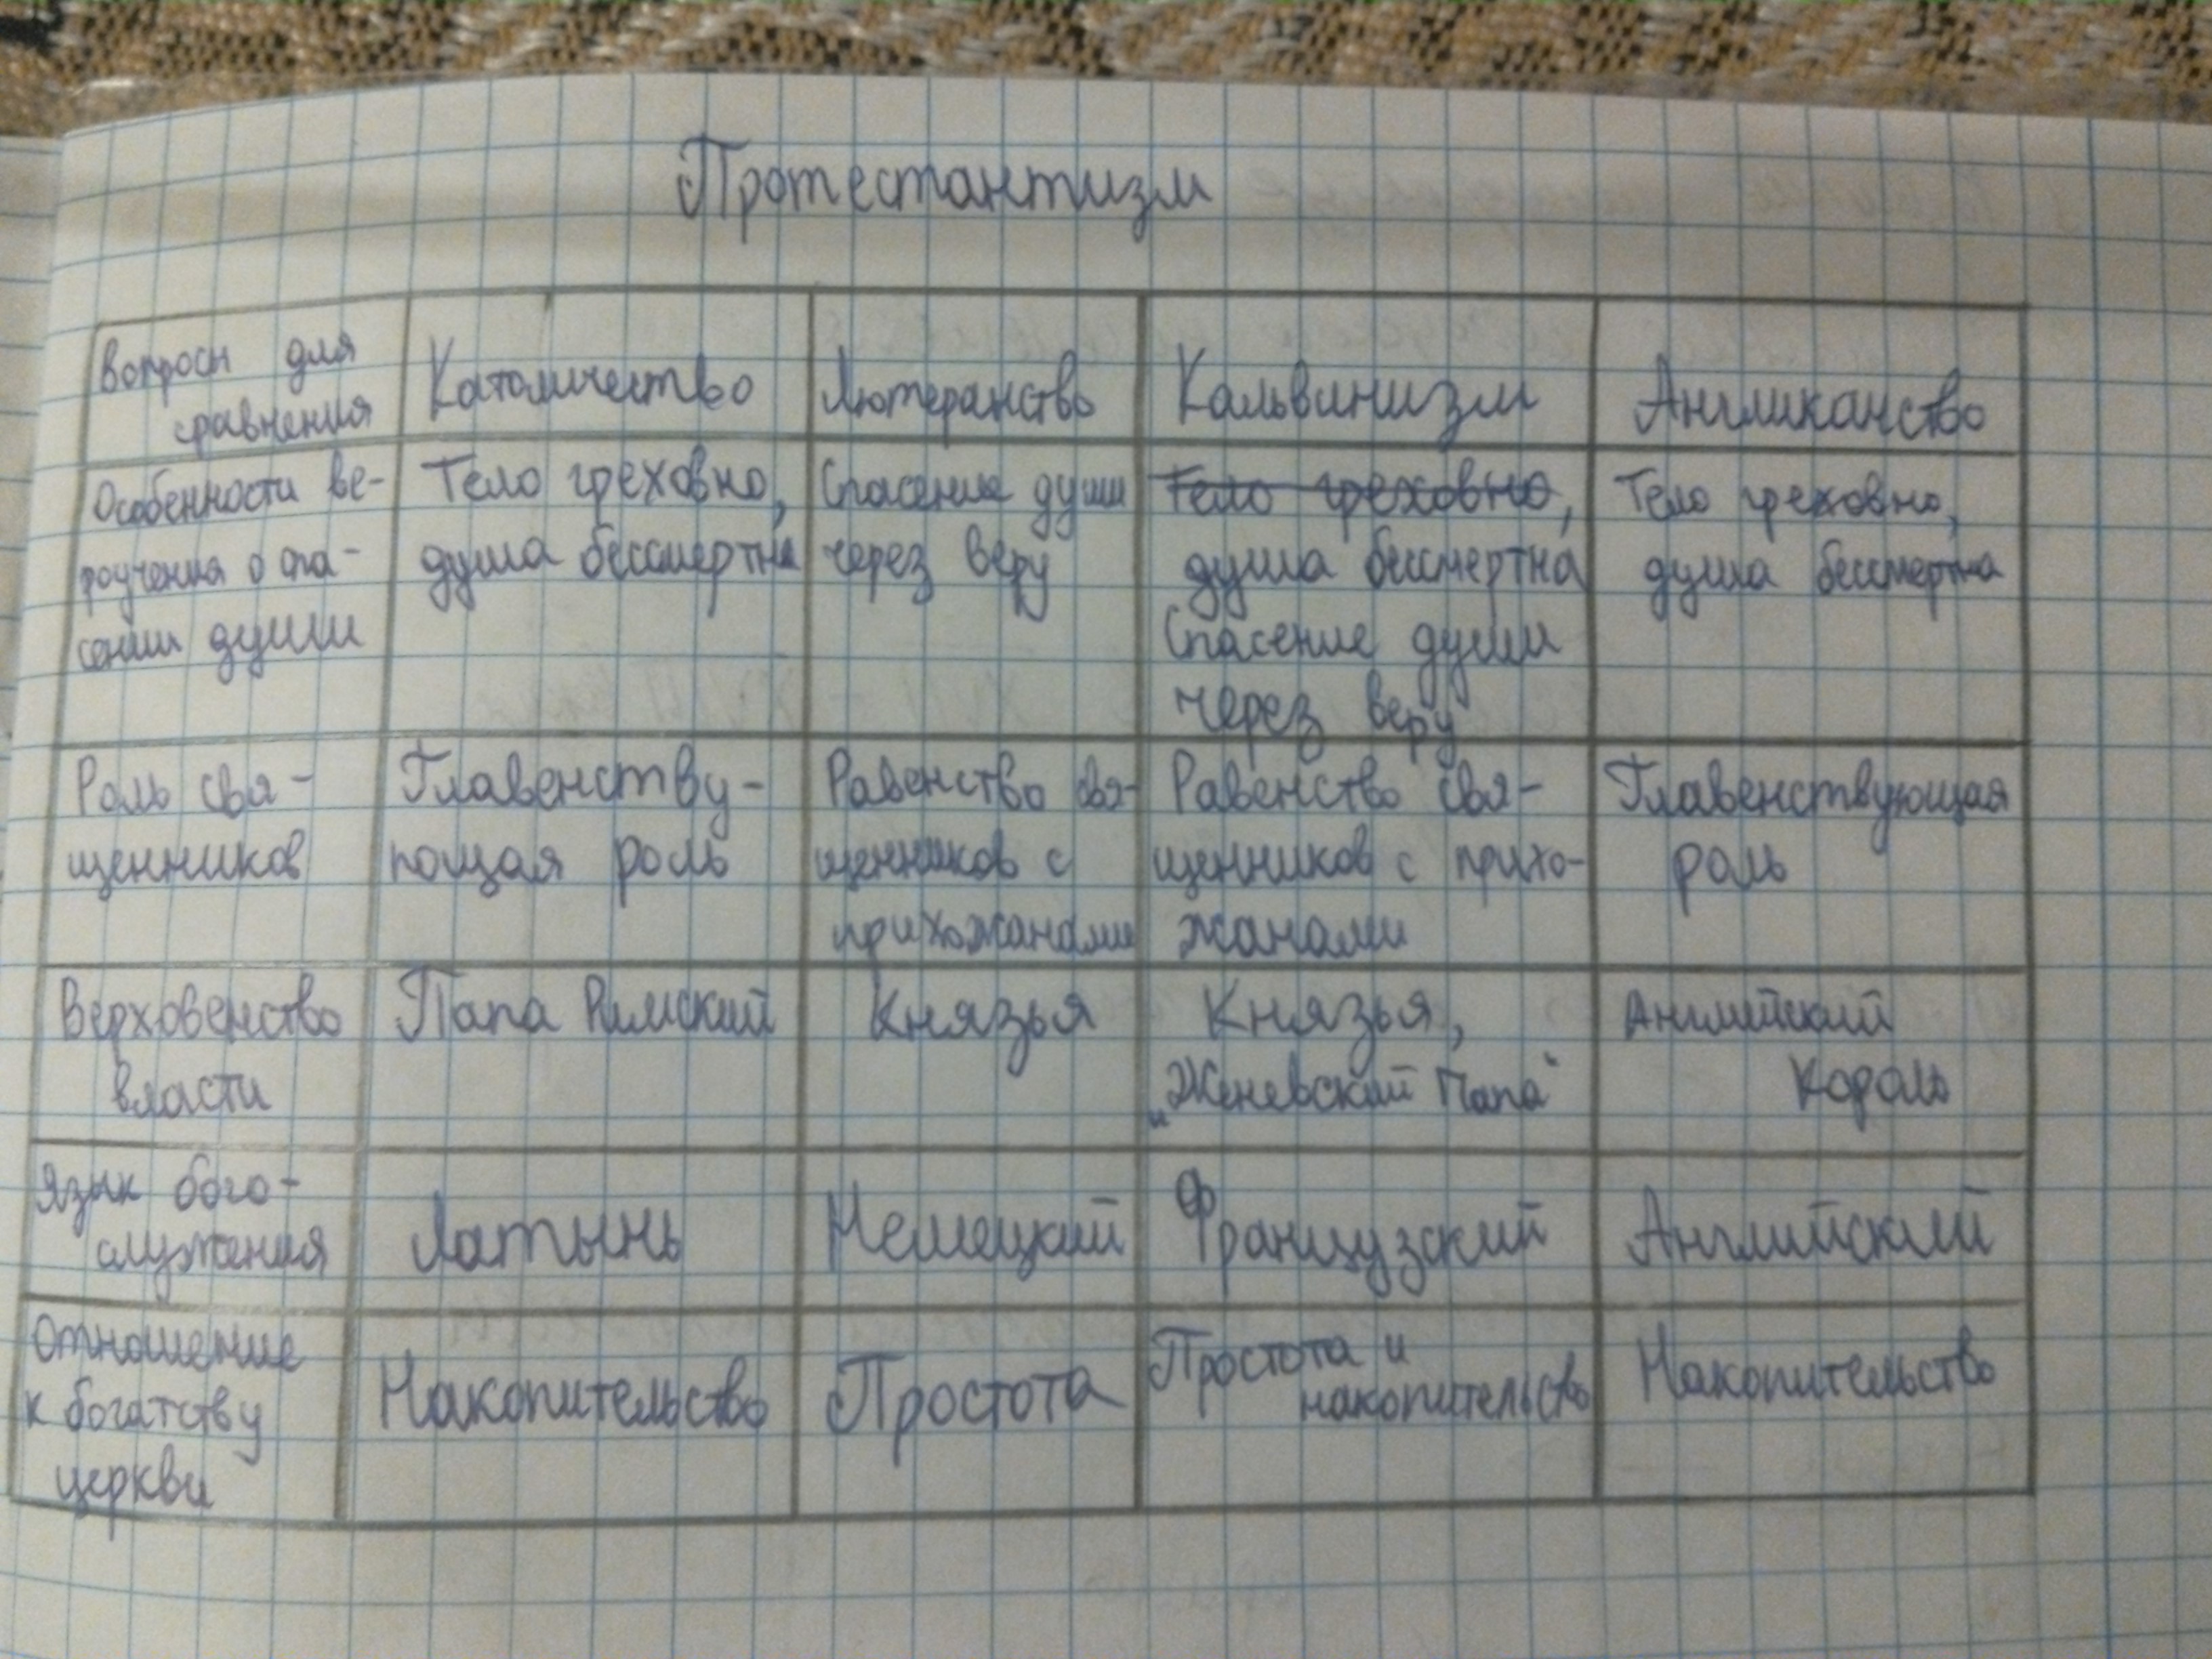 Протестантизм
Вопросы для
сравнения
Католичество
Лютеранство
Кальвинизм
Англиканство
Особенности ве-
роучения о спа-
сении души
Тело греховно,
душа бессмертна
Спасение души
через веру
Тело греховно,
душа бессмертна
Спасение души
через веру
Тело греховно,
душа бессмертна
Роль свя-
щенников
Главенству-
ющая роль
Равенство свя-
щенников с
прихожанами
Равенство свя-
щенников с прихо-
жанами
Главенствующая
роль
Верховенство
власти
Папа Римский
Князья
Князья,
„Женевский Папа“
Английский
Король
Язык бого-
служения
Латынь
Немецкий
Французский
Английский
Отношение
к богатству
церкви
Накопительство
Простота
Простота и
накопительство
Накопительство